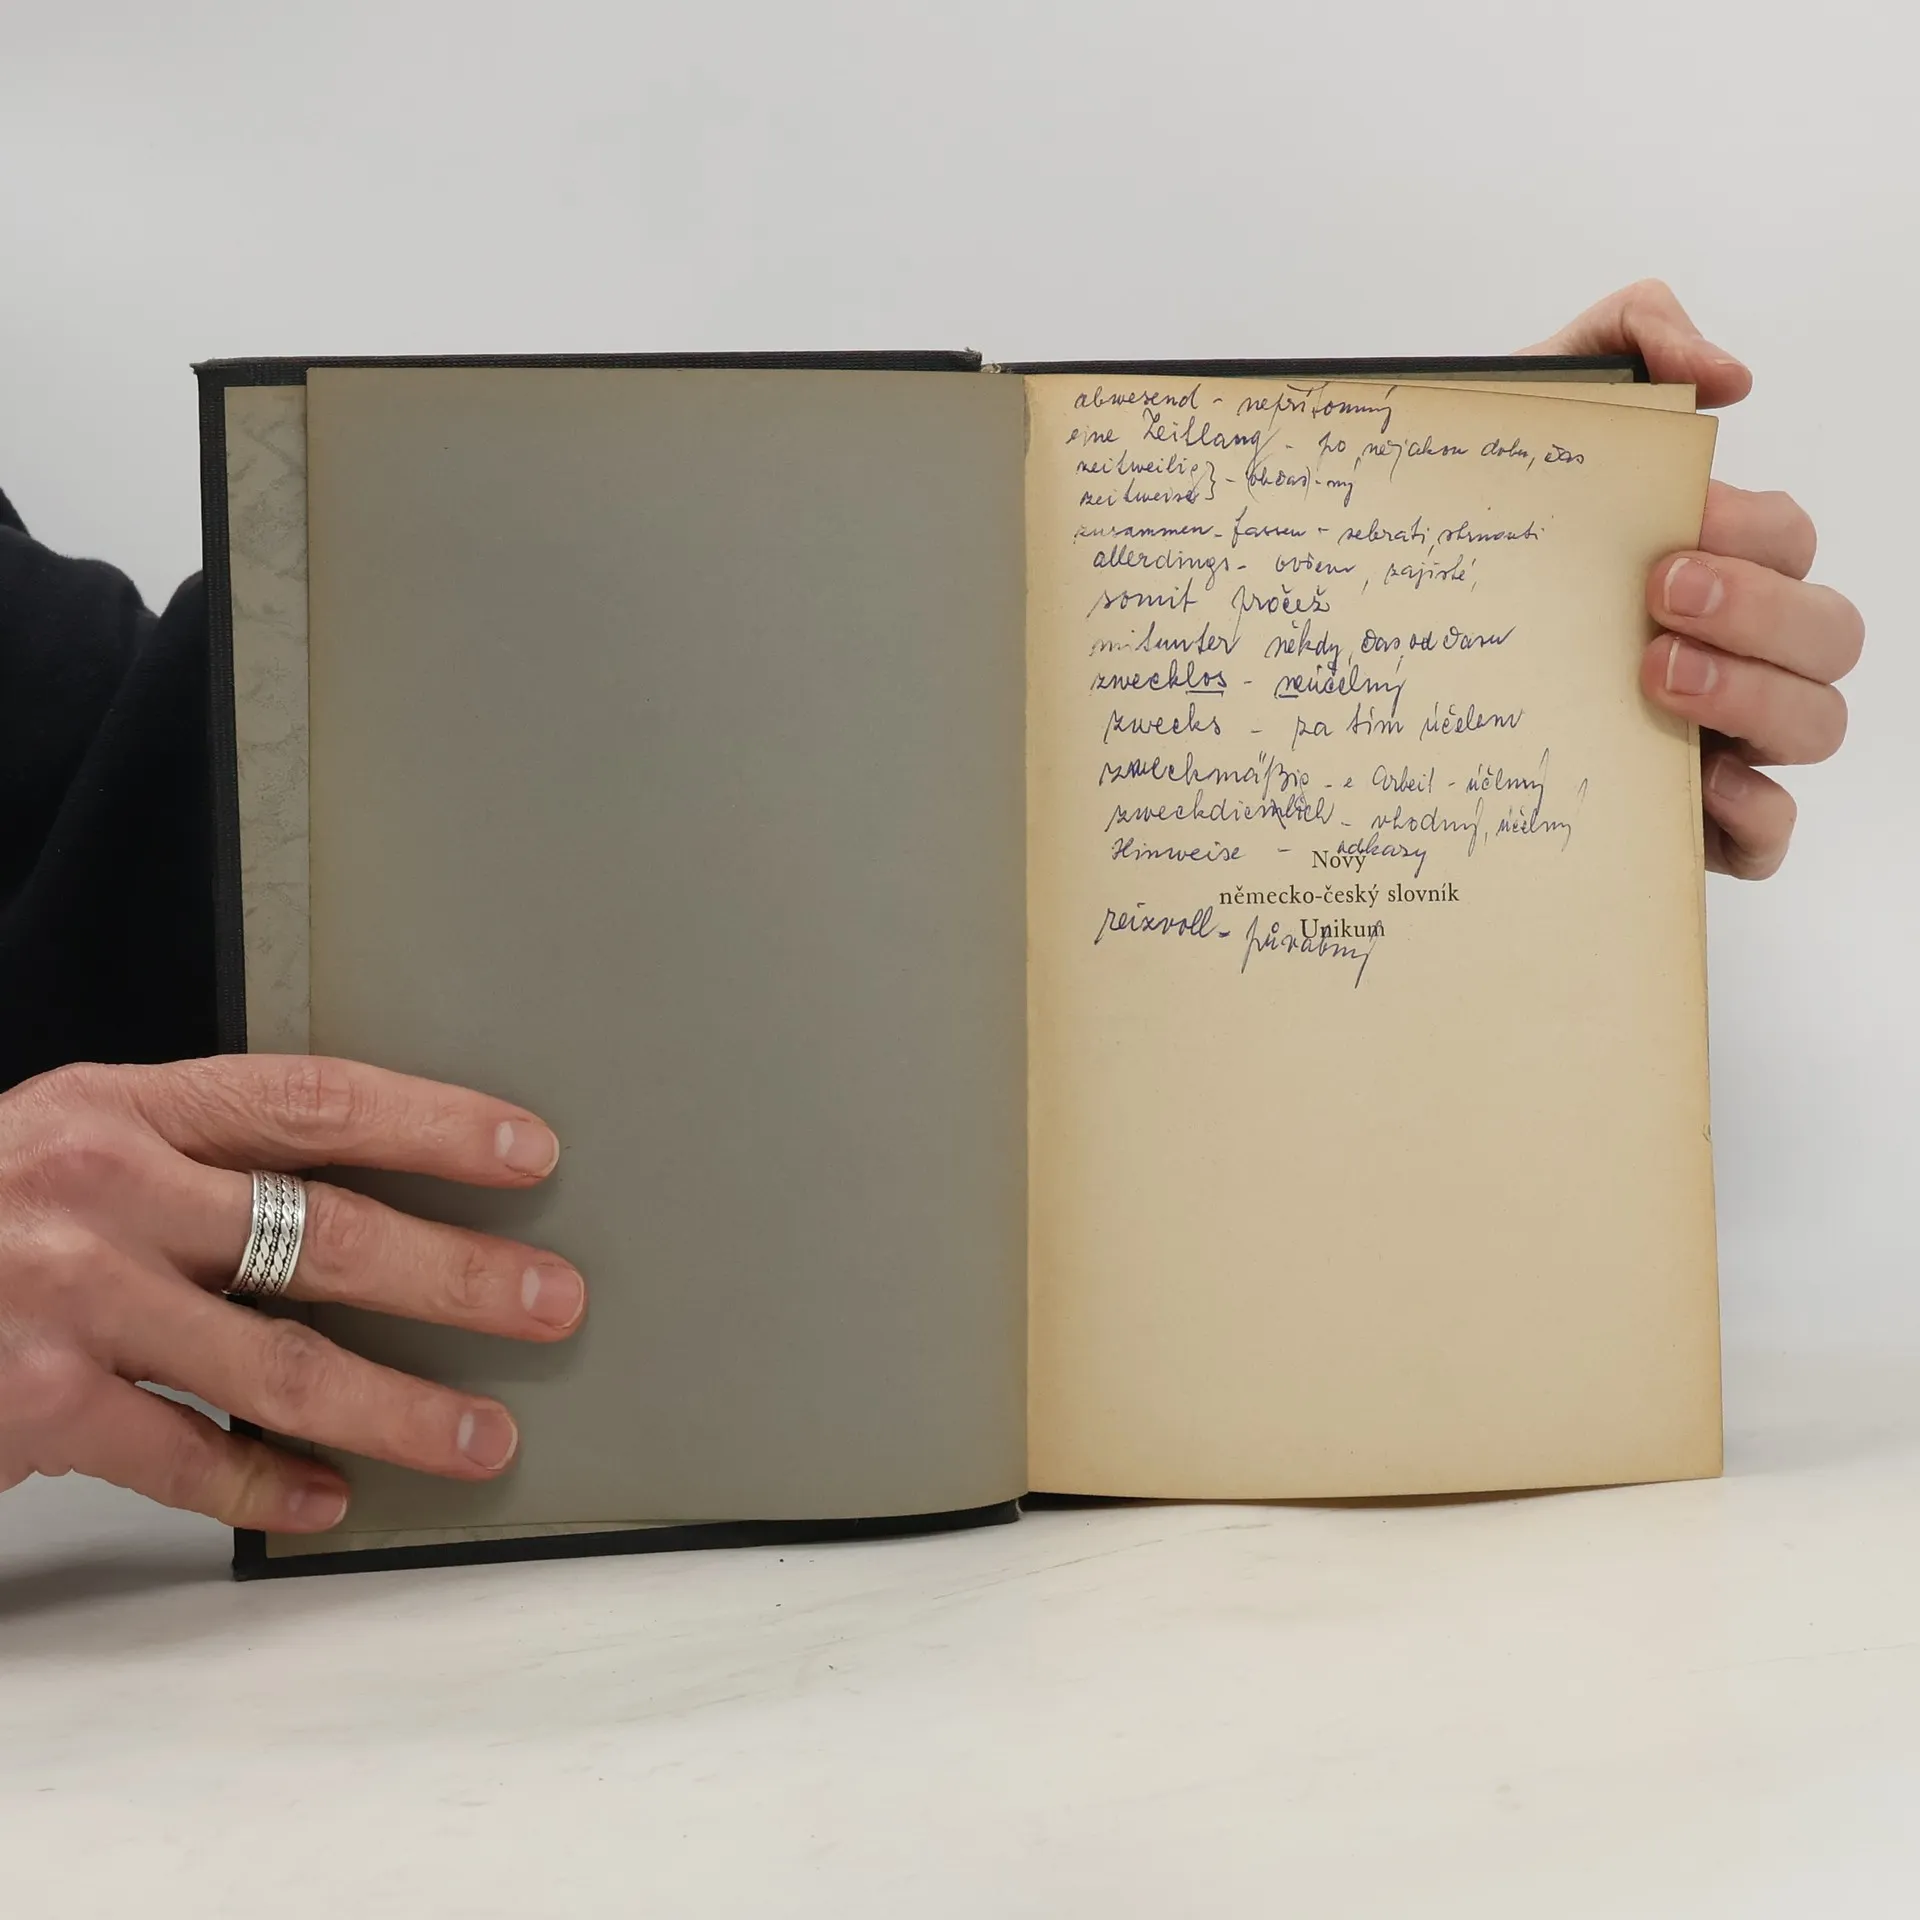 abwesend - nepřítomný
eine Zeitlang - po nějakou dobu, čas
zeitweilig } - (občas)-ný
zeitweise }
zusammen-fassen - sebrati, shrnouti
allerdings - ovšem, zajisté,
somit pročež
mitunter někdy, čas od času
zwecklos - neúčelný
zwecks - za tím účelem
zweckmäßig - e Arbeit - účelný
zweckdienlich - vhodný, účelný
Hinweise - odkazy
Nový
německo-český slovník
Unikum
reizvoll - půvabný